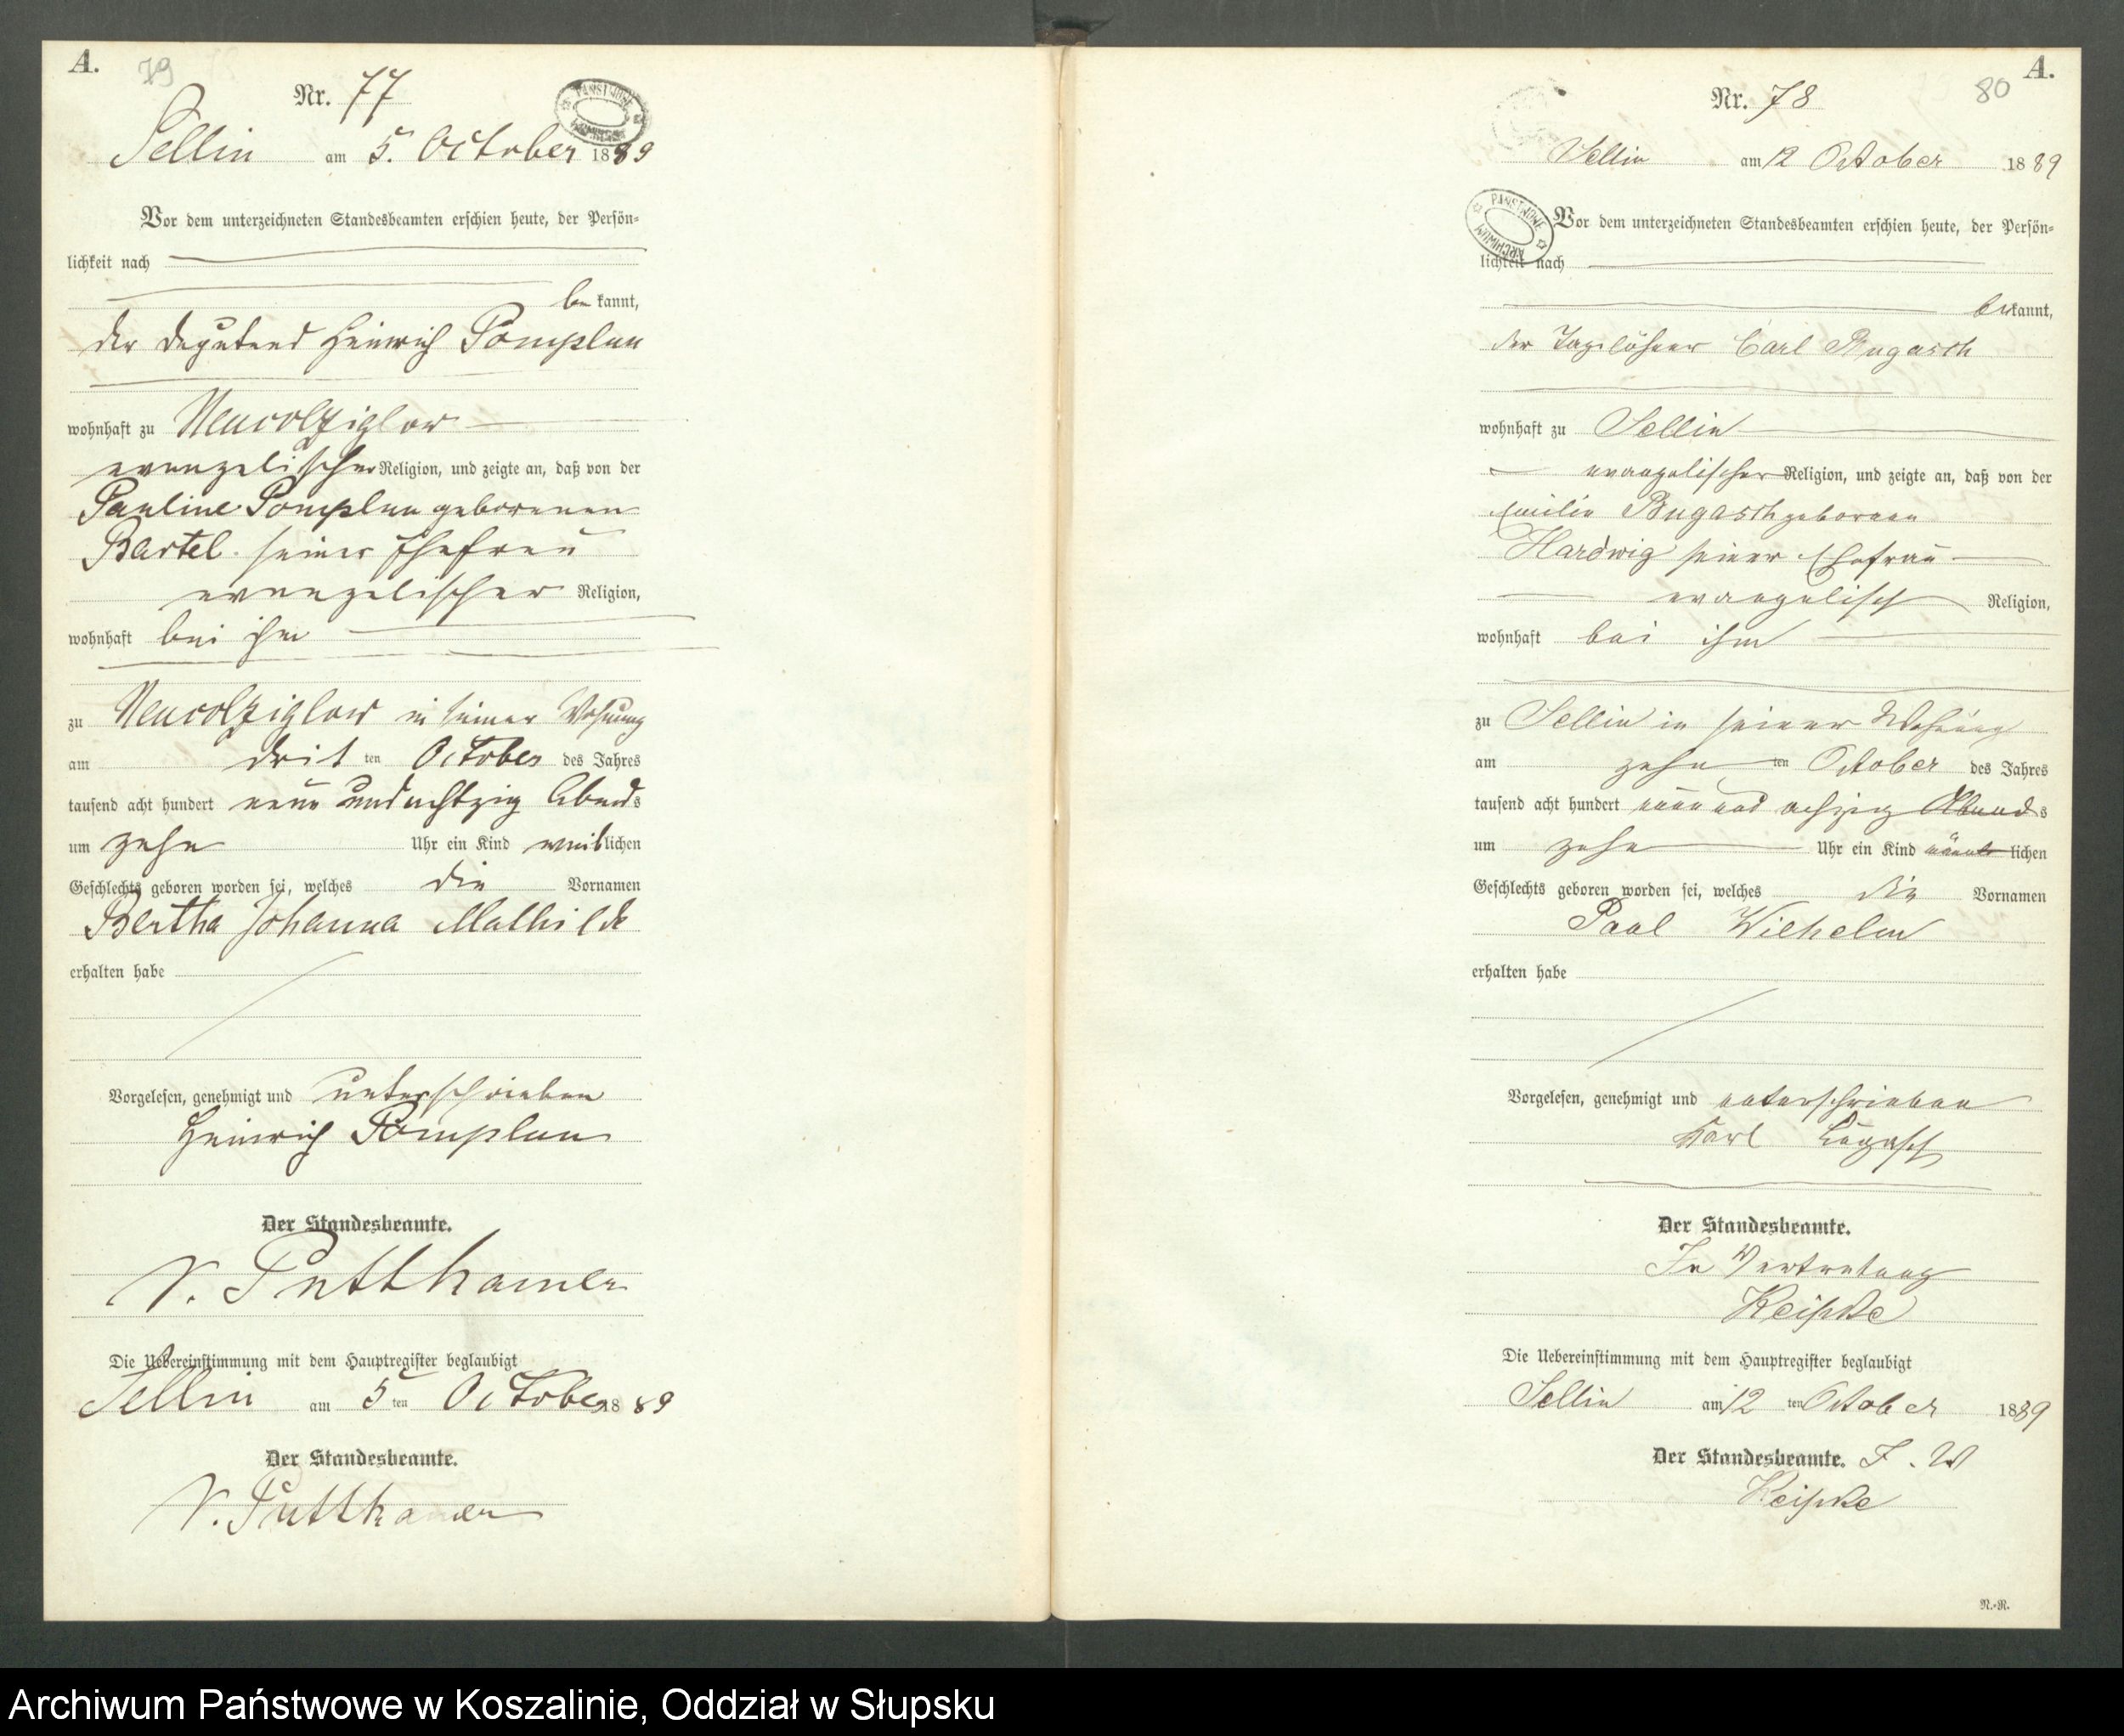 A.
79
Nr. 77
Sellin am 5. October 1889
Vor dem unterzeichneten Standesbeamten erschien heute, der Persön=
lichkeit nach
be kannt,
der Deputant Heinrich Pomplun
wohnhaft zu Neucolziglow
evangelischer Religion, und zeigte an, daß von der
Pauline Pomplun geborenen
Bartel seiner Ehefrau
evangelischer Religion,
wohnhaft bei ihm
zu Neucolziglow in seiner Wohnung
am drit ten October des Jahres
tausend acht hundert neun und achtzig Abends
um zehn Uhr ein Kind weiblichen
Geschlechts geboren worden sei, welches die Vornamen
Bertha Johanna Mathilde
erhalten habe
Vorgelesen, genehmigt und unterschrieben
Heinrich Pomplun
Der Standesbeamte.
v. Puttkamer
Die Uebereinstimmung mit dem Hauptregister beglaubigt
Sellin am 5 ten October 1889
Der Standesbeamte.
v. Puttkamer
PANSTWOWE ARCHIWUM
A.
80
Nr. 78
Sellin am 12 October 1889
PANSTWOWE ARCHIWUM
Vor dem unterzeichneten Standesbeamten erschien heute, der Persön=
lichkeit nach
bekannt,
der Tagelöhner Carl
wohnhaft zu Sellin
evangelischer Religion, und zeigte an, daß von der
Emilie geboren
Hardwig seiner Ehefrau
evangelisch Religion,
wohnhaft bei ihm
zu Sellin in seiner Wohnung
am zehn ten October des Jahres
tausend acht hundert neun und achzig Abends
um zehn Uhr ein Kind männlichen
Geschlechts geboren worden sei, welches die Vornamen
Paul Wilhelm
erhalten habe
Vorgelesen, genehmigt und unterschrieben
Karl
Der Standesbeamte.
In Vertretung
Die Uebereinstimmung mit dem Hauptregister beglaubigt
Sellin am 12 ten October 1889
Der Standesbeamte. I. V
N.=N.
Archiwum Państwowe w Koszalinie, Oddział w Słupsku